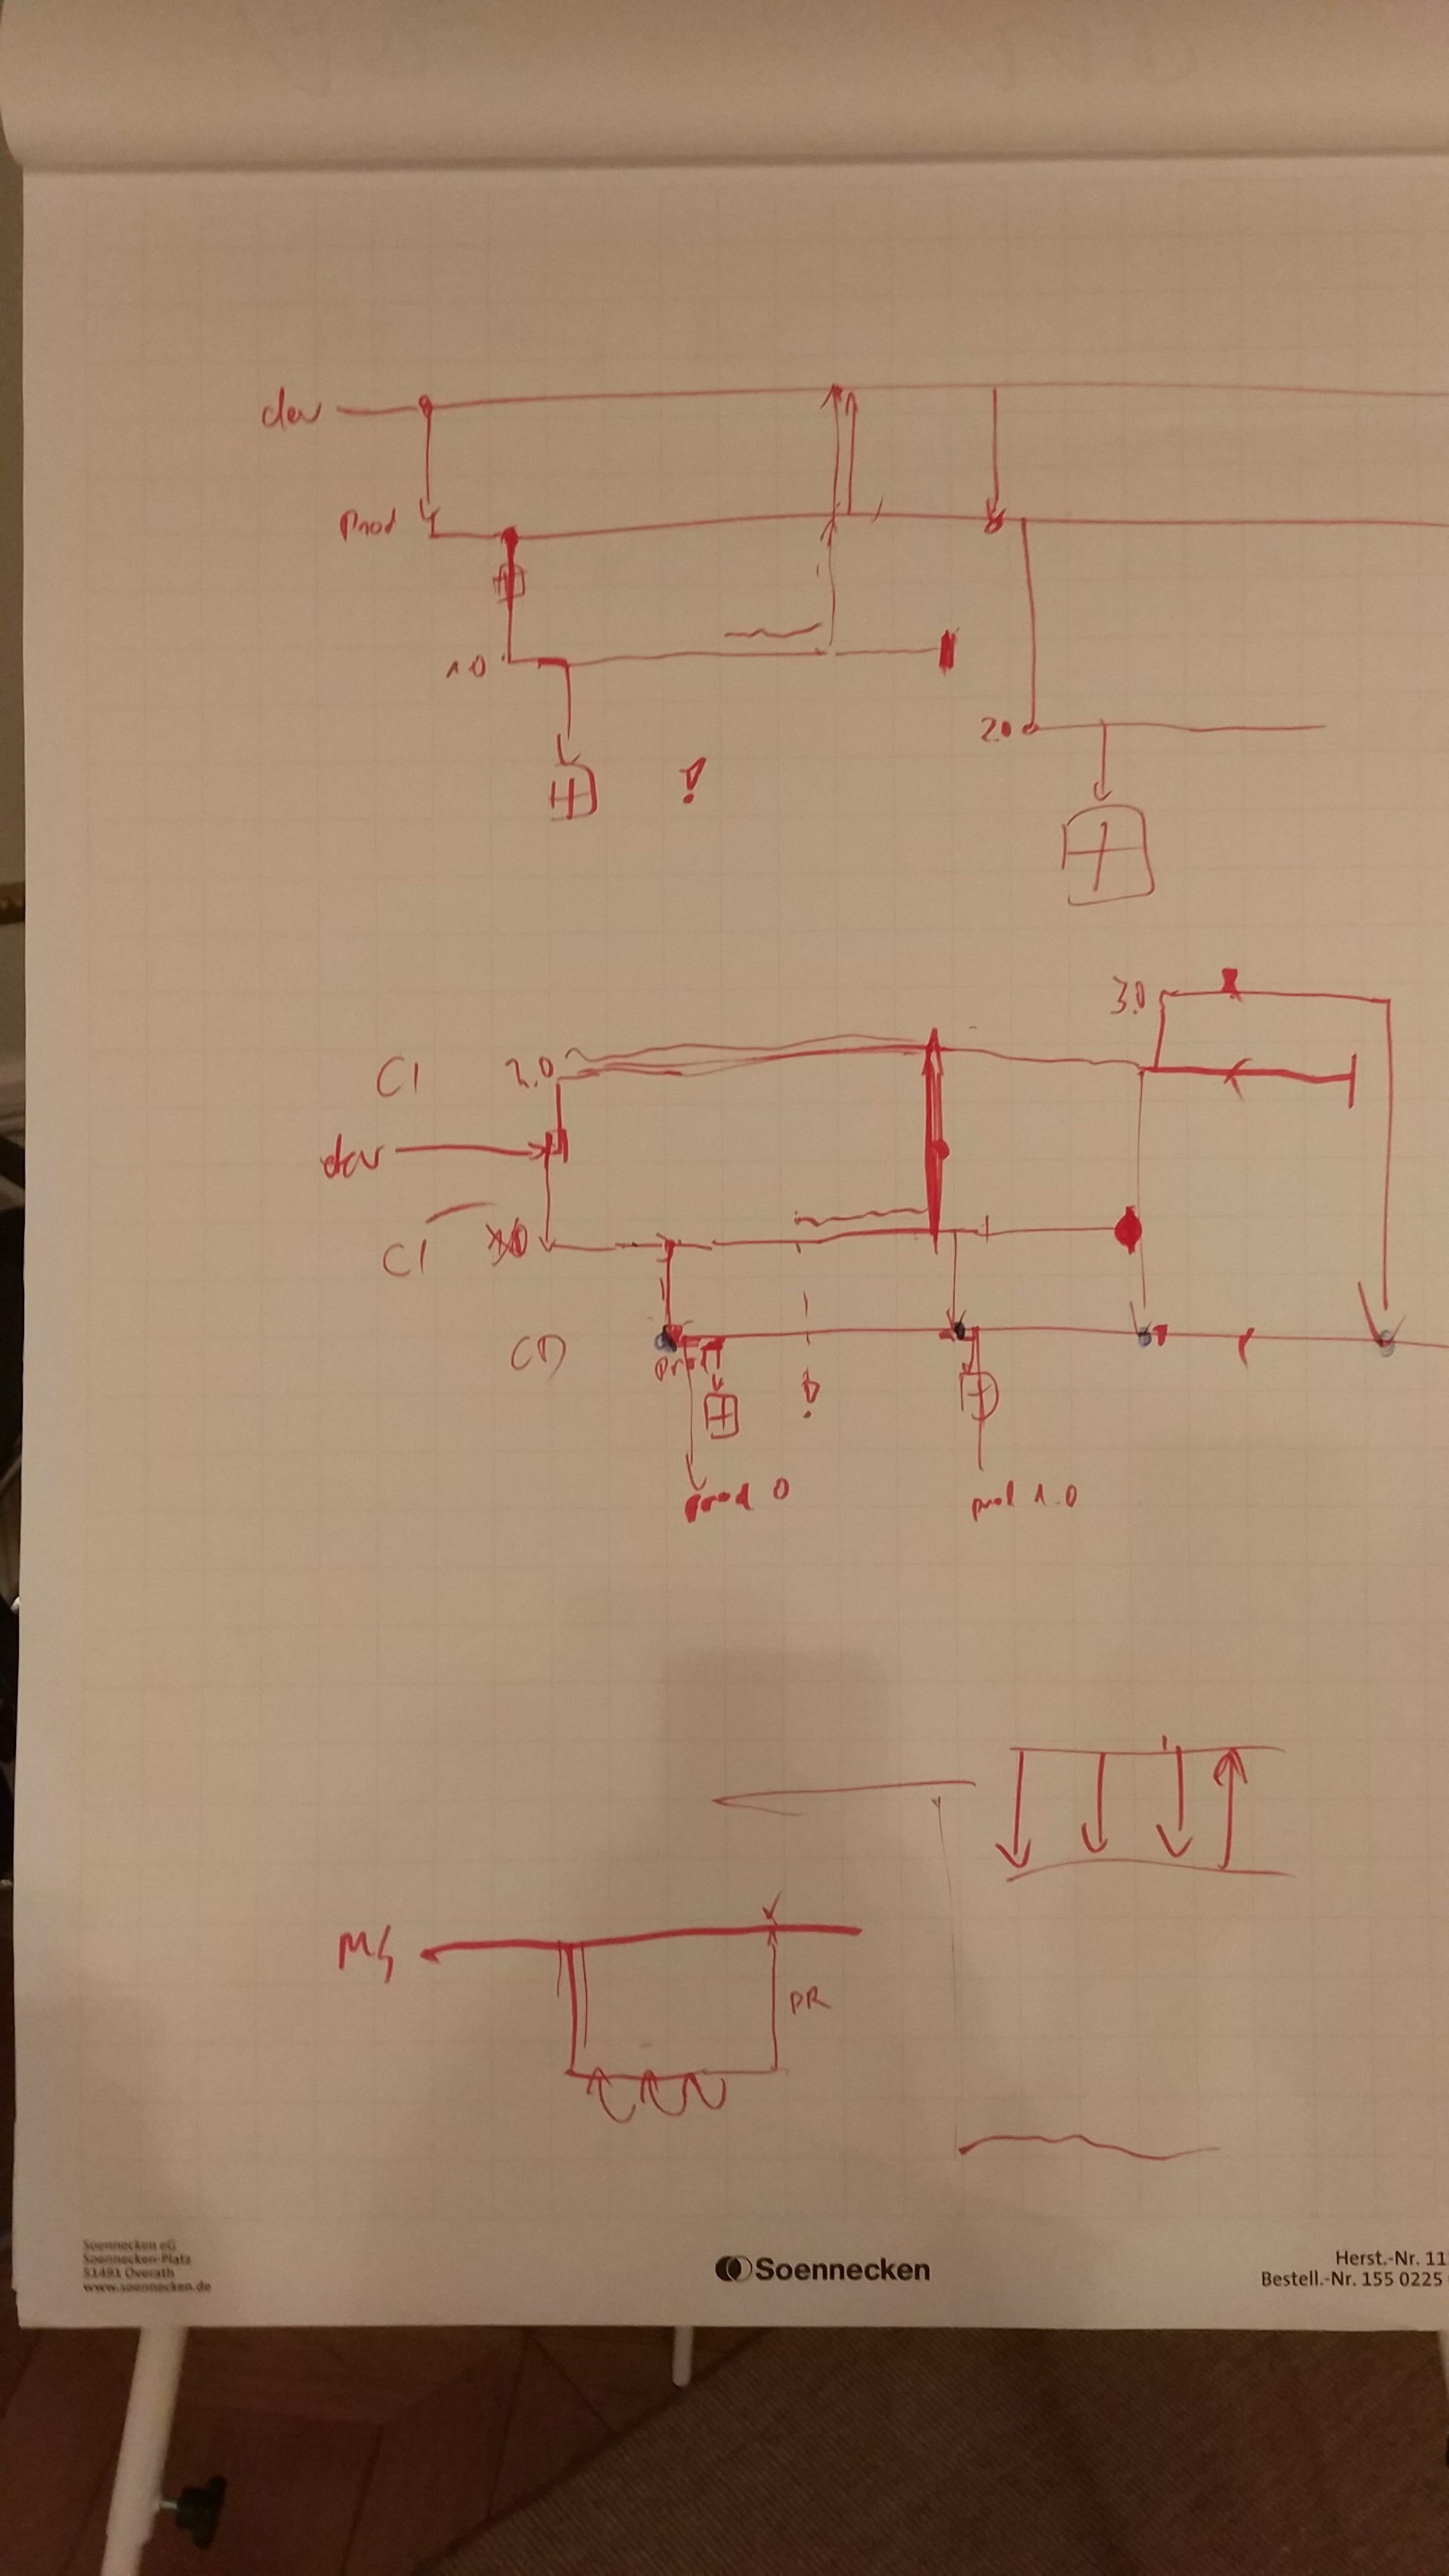 dev
Prod
1.0
!
2.0
3.0
CI
2.0
dev
CI
CD
prod
!
prod 0
prod 1.0
PR
Soennecken eG
Soennecken-Platz
51491 Overath
www.soennecken.de
Soennecken
Herst.-Nr. 11
Bestell.-Nr. 155 0225